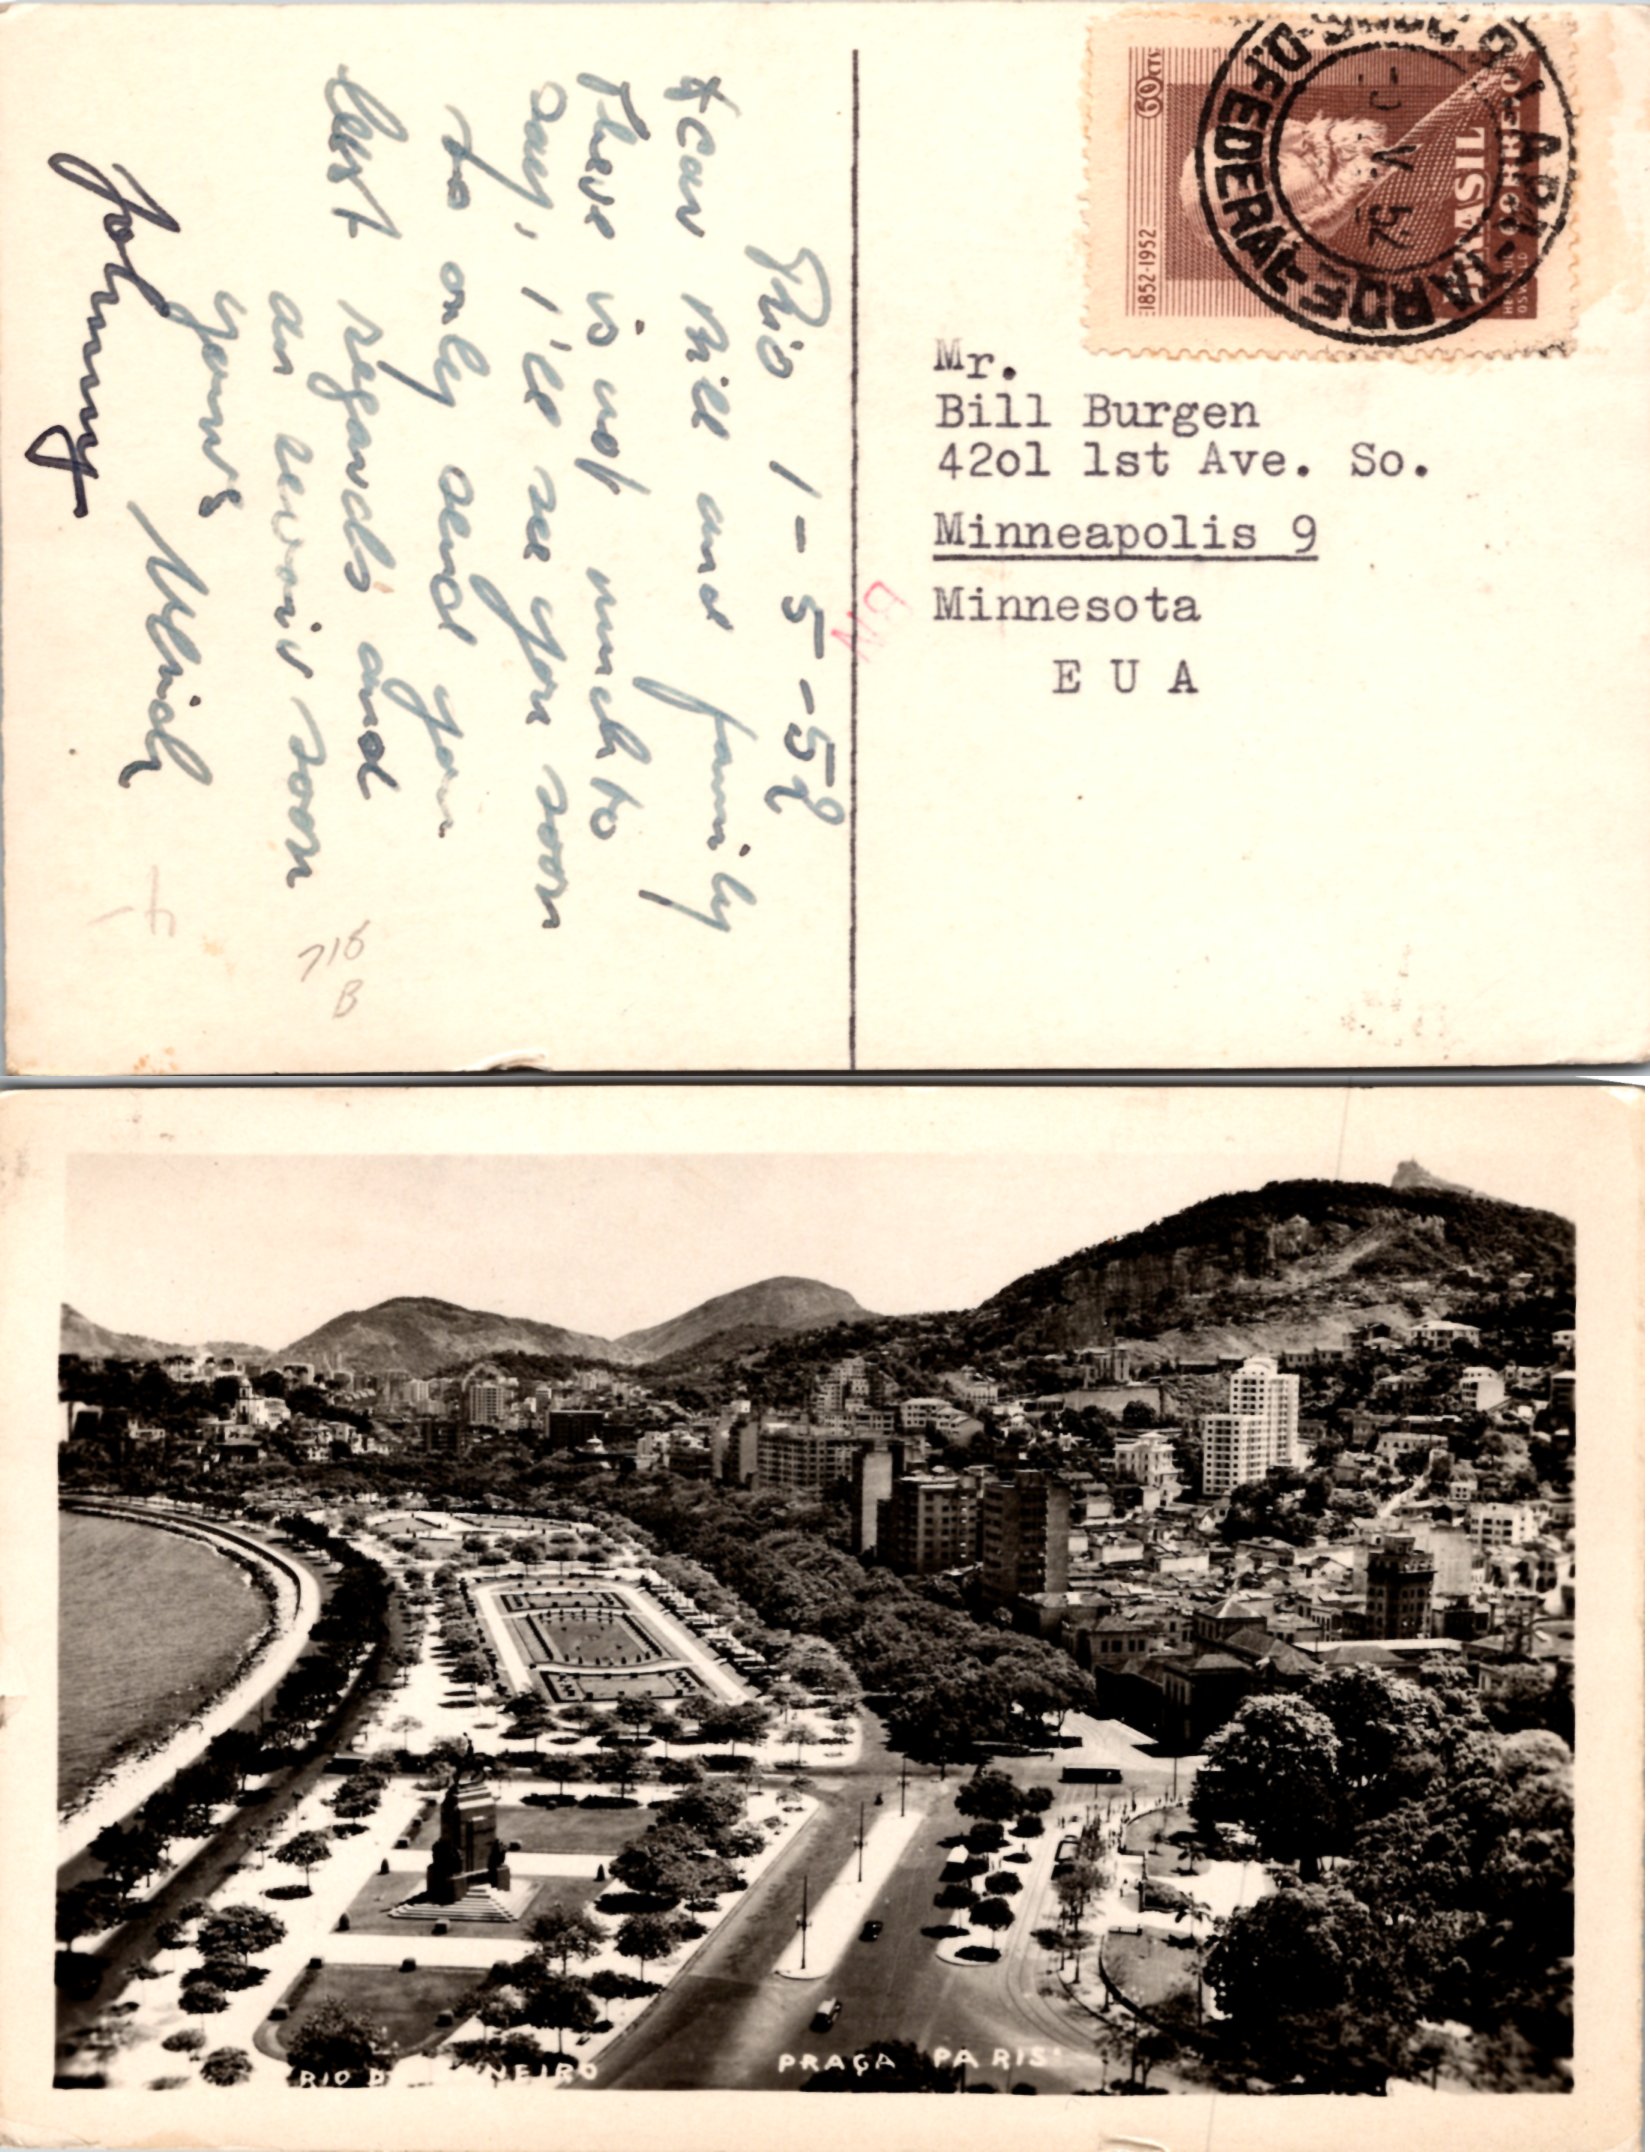 Rio 1-5-52
Dear Bill and family
There is not much to
say, I'll see you soon
to only send you
best regards and
au revoir soon
yours
Ulrich
Johnny
716
B
60 CTS
1852-1952
BRASIL
CORREIO
D.FEDERAL
V 52
Mr.
Bill Burgen
42ol 1st Ave. So.
Minneapolis 9
Minnesota
E U A
RIO D NEIRO
PRAÇA PARIS